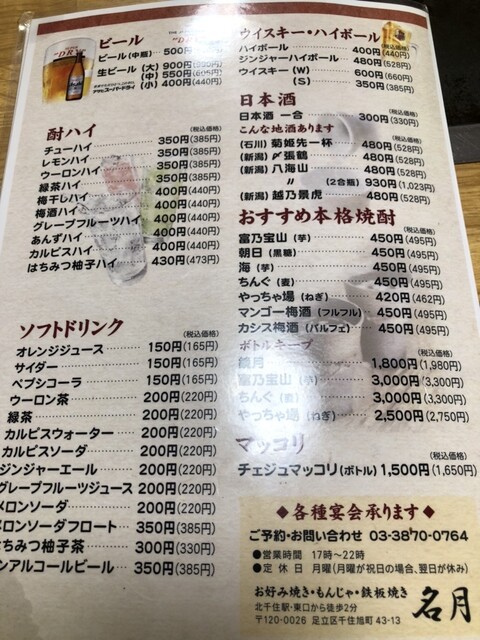 ビール
ビール(中瓶) 500円
生ビール (大) 900円
(中) 550円(605円)
(小) 400円(440円)
アサヒスーパードライ
酎ハイ (税込価格)
チューハイ 350円(385円)
レモンハイ 350円(385円)
ウーロンハイ 350円(385円)
緑茶ハイ 350円(385円)
梅干しハイ 400円(440円)
梅酒ハイ 400円(440円)
グレープフルーツハイ 400円(440円)
あんずハイ 400円(440円)
カルピスハイ 400円(440円)
はちみつ柚子ハイ 430円(473円)
ソフトドリンク (税込価格)
オレンジジュース 150円(165円)
サイダー 150円(165円)
ペプシコーラ 150円(165円)
ウーロン茶 200円(220円)
緑茶 200円(220円)
カルピスウォーター 200円(220円)
カルピスソーダ 200円(220円)
ジンジャーエール 200円(220円)
グレープフルーツジュース 200円(220円)
メロンソーダ 200円(220円)
メロンソーダフロート 350円(385円)
はちみつ柚子茶 300円(330円)
ンアルコールビール 350円(385円)
ウイスキー・ハイボール
(税込価格)
ハイボール 400円(440円)
ジンジャーハイボール 480円(528円)
ウイスキー (W) 600円(660円)
(S) 350円(385円)
日本酒 (税込価格)
日本酒 一合 300円(330円)
こんな地酒あります
(石川) 菊姫先一杯 480円(528円)
(新潟) 〆張鶴 480円(528円)
(新潟) 八海山 480円(528円)
〃 (2合瓶) 930円(1,023円)
(新潟) 越乃景虎 480円(528円)
おすすめ本格焼酎
(税込価格)
富乃宝山 (芋) 450円(495円)
朝日 (黒糖) 450円(495円)
海 (芋) 450円(495円)
ちんぐ (麦) 450円(495円)
やっちゃ場 (ねぎ) 420円(462円)
マンゴー梅酒 (フルフル) 450円(495円)
カシス梅酒 (パルフェ) 450円(495円)
ボトルキープ
鏡月 1,800円(1,980円)
富乃宝山 (芋) 3,000円(3,300円)
ちんぐ (麦) 3,000円(3,300円)
やっちゃ場 (ねぎ) 2,500円(2,750円)
マッコリ (税込価格)
チェジュマッコリ(ボトル) 1,500円(1,650円)
◆各種宴会承ります◆
ご予約・お問い合わせ 03-3870-0764
●営業時間 17時〜22時
●定休日 月曜(月曜が祝日の場合、翌日が休み)
お好み焼き・もんじゃ・鉄板焼き
北千住駅・東口から徒歩2分
〒120-0026 足立区千住旭町 43-13
名月